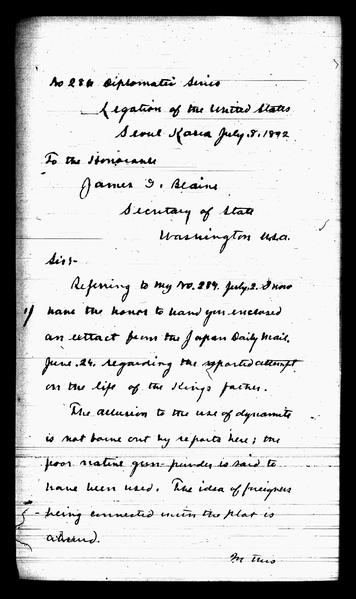 Diplomatic Series
Legation of the United States
Seoul Korea July 8. 1892
To the Honorable
James G. Blaine
Secretary of State
Washington U.S.A.
Sir:-
Referring to my No. 284. July 2. I now
have the honor to hand you enclosed
an extract from the Japan Daily Mail,
June. 24. regarding the reported attempt
on the life of the King's father.
The allusion to the use of dynamite
is not borne out by reports here; the
poor native gun-powder is said to
have been used. The idea of foreigners
being connected with the plot is
absurd.
In this